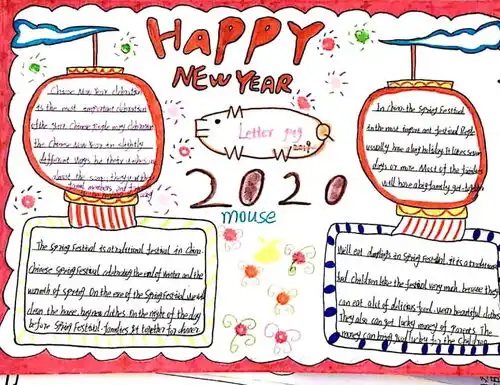 HAPPY
NEW YEAR
Letter pig
2019
2020
mouse
Chinese New Year celebration
is the most important celebration
of the year. Chinese People may celebrate
the Chinese New Year in slightly
different ways
In China the Spring Festival
is the most important festival. People
usually have a big holiday. It takes seven
days or more. Most of the families
will have a big family get-together
The Spring Festival is a traditional festival in China.
Chinese Spring Festival celebrating the end of winter and the
warmth of spring. On the eve of the Spring Festival we will
clean the house, buy new clothes. On the night of the day
before Spring Festival, families get together for dinner.
We'll eat dumplings in Spring Festival. it is a traditional
food. Children like the festival very much. because they
can eat a lot of delicious food. wear beautiful clothes
They also can get lucky money of Parents. The
money can bring good lucky for the Children